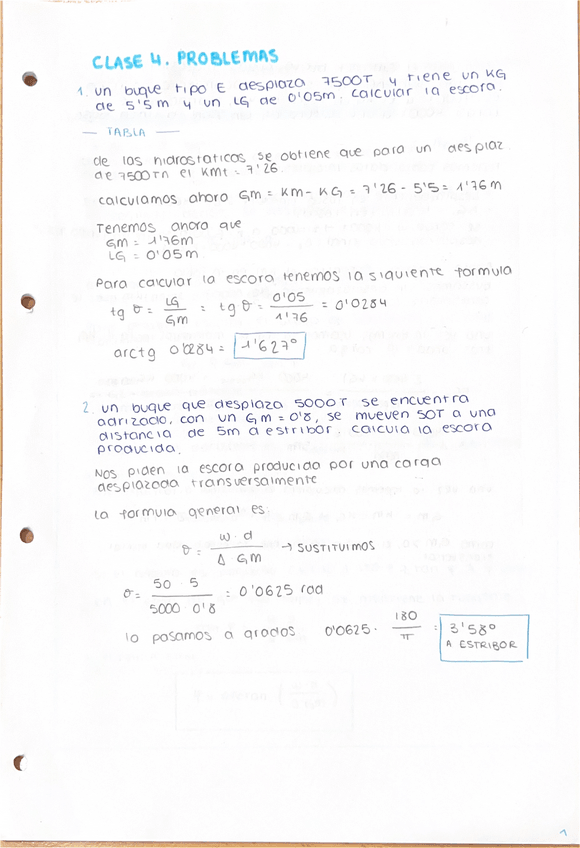 CLASE 4. PROBLEMAS
1. un buque tipo E desplaza 7500T y tiene un KG
de 5'5m y un LG de 0'05m. calcular la escora.
— TABLA —
de las hidrostaticas se obtiene que para un desplaz.
de 7500Tn el KMt = 7'26.
calculamos ahora GM = KM - KG = 7'26 - 5'5 = 1'76m
Tenemos ahora que
GM = 1'76m
LG = 0'05m
Para calcular la escora tenemos la siguiente formula
tg θ = LG / GM = tg θ = 0'05 / 1'76 = 0'0284
arctg 0'0284 = 1'627°
2. un buque que desplaza 5000T se encuentra
adrizado, con un GM = 0'8, se mueven 50T a una
distancia de 5m a estribor. calcula la escora
producida.
Nos piden la escora producida por una carga
desplazada transversalmente
la formula general es:
θ = w · d / Δ GM → SUSTITUIMOS
θ = 50 · 5 / 5000 0'8 = 0'0625 rad
lo pasamos a grados 0'0625 · 180 / π = 3'58°
A ESTRIBOR
1